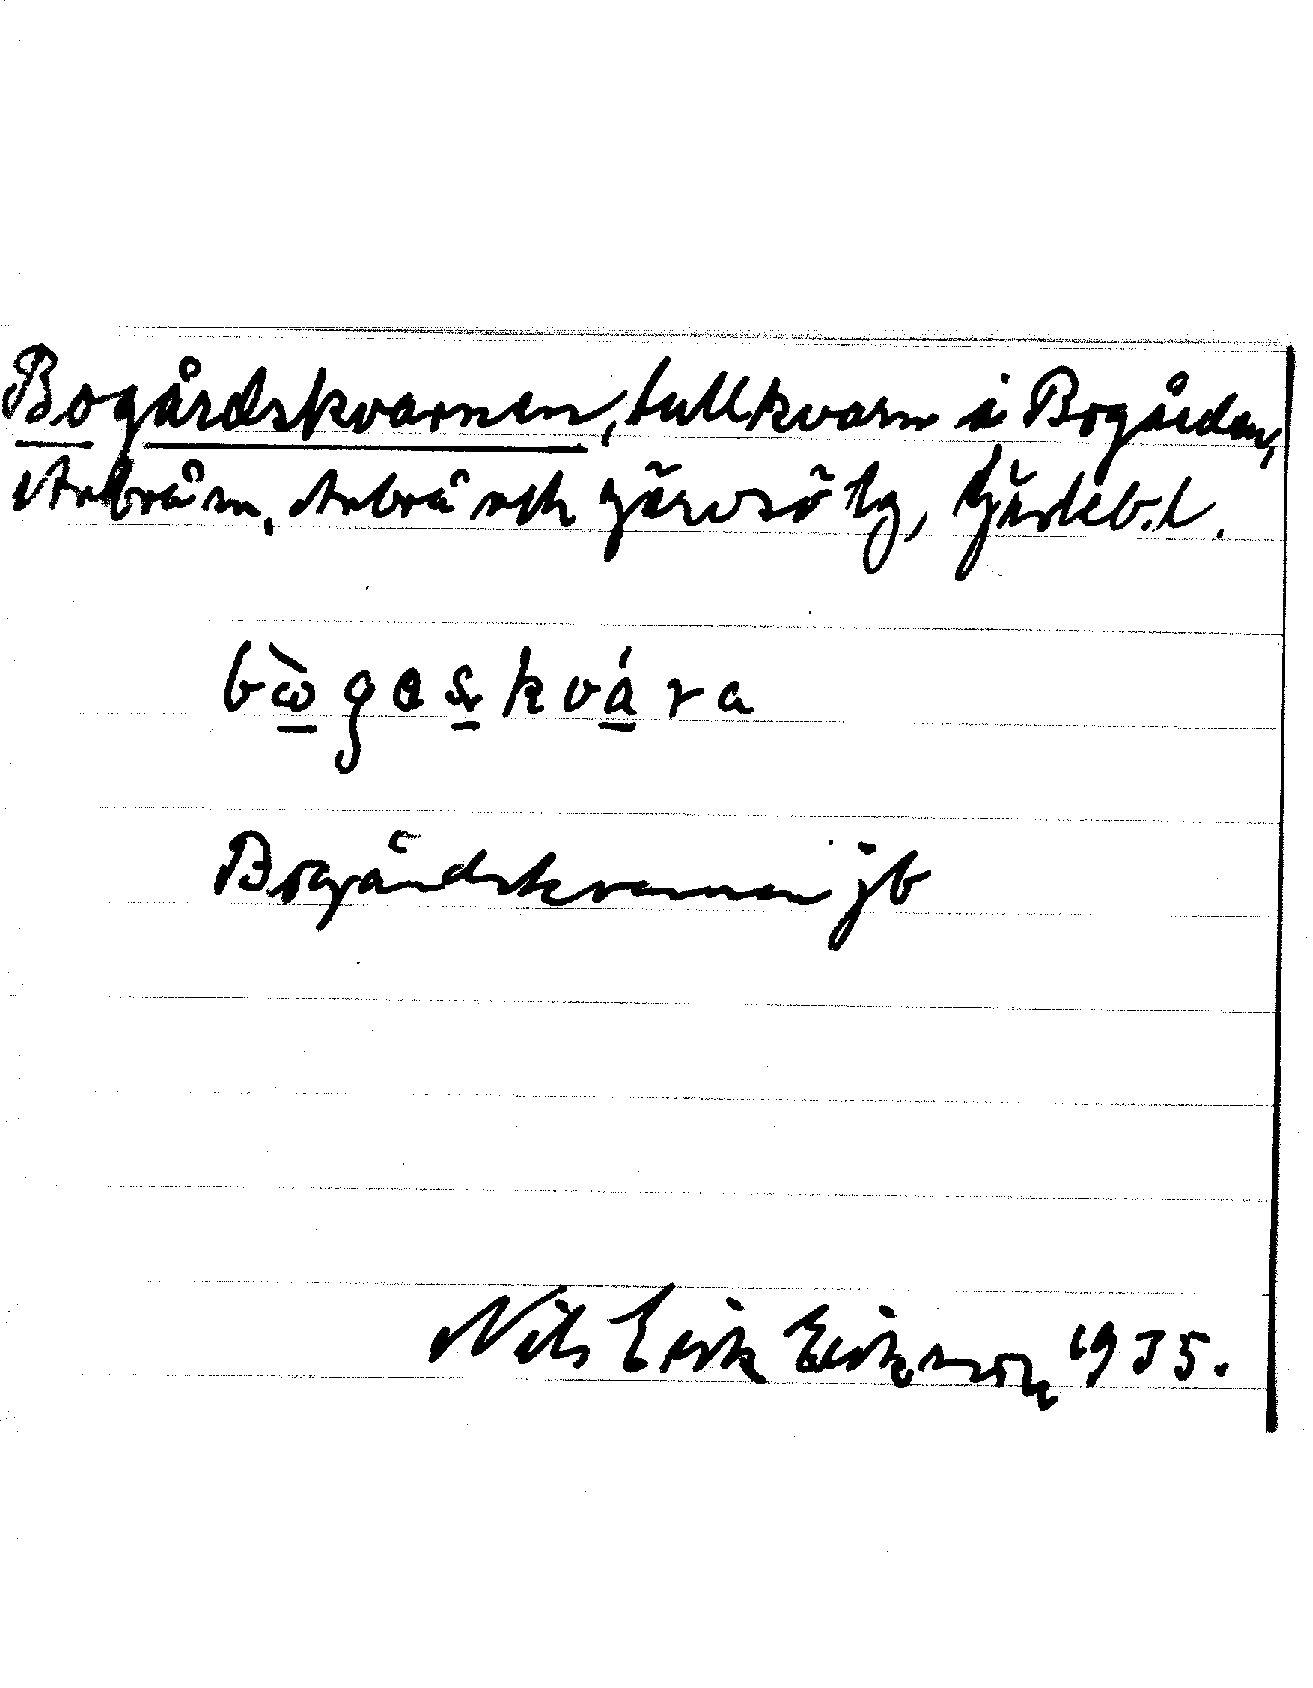 Bogårdskvarnen, tullkvarn i Bogården,
Arbrå sn, Arbrå och Järvsö tg, Gävleb. l.
bὼgaskvára
Bogårdskvarnen jb
Nils Erik Eriksson 1935.